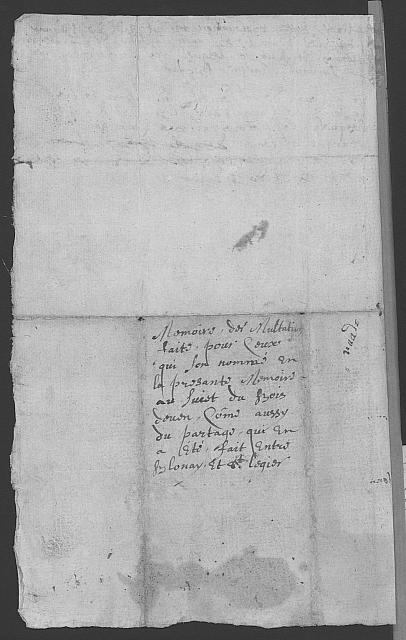 Memoire des Multation
faite pour Ceux
qui son nommé En
la presante Memoire
au suiet du Bois
deven, Côme aussy
du partage, qui En
a Eté, fait Entre
Blonay, Et St Legier